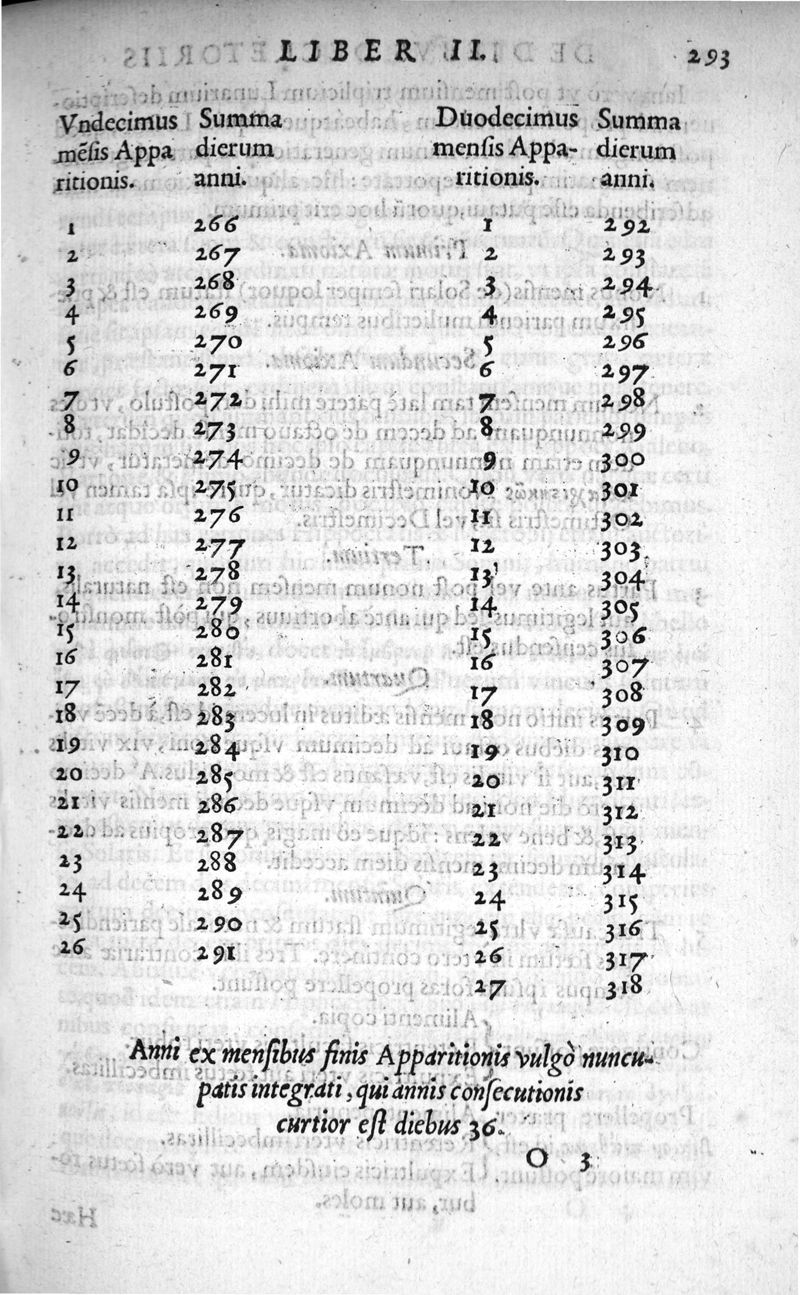 LIBER II. 293
Vndecimus Summa Duodecimus Summa
mẽsis Appa dierum mensis Appa- dierum
ritionis. anni. ritionis. anni.
1 266 1 292
2 267 2 293
3 268 3 294
4 269 4 295
5 270 5 296
6 271 6 297
7 272 7 298
8 273 8 299
9 274 9 300
10 275 10 301
11 276 11 302
12 277 12 303
13 278 13 304
14 279 14 305
15 280 15 306
16 281 16 307
17 282 17 308
18 283 18 309
19 284 19 310
20 285 20 311
21 286 21 312
22 287 22 313
23 288 23 314
24 289 24 315
25 290 25 316
26 291 26 317
27 318
Anni ex mensibus finis Apparitionis vulgò nuncu-
patis integrati, qui annis consecutionis
curtior est diebus 36.
O 3